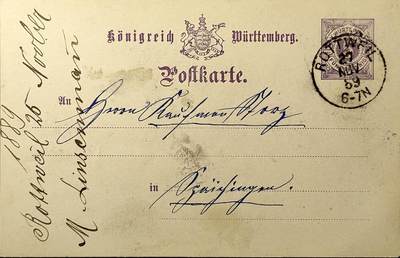 Königreich Württemberg.
Postkarte.
An Herrn Kaufmann Storz
in Spaichingen.
ROTTWEIL
NOV
89
6-7N
1889
Rottweil 25 Novbr
M Linsenmann